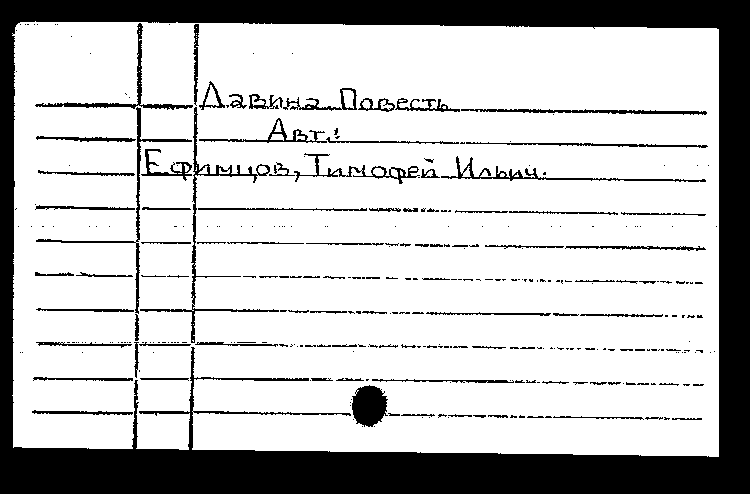 Лавина Повесть
Авт.:
Ефимцов, Тимофей Ильич.